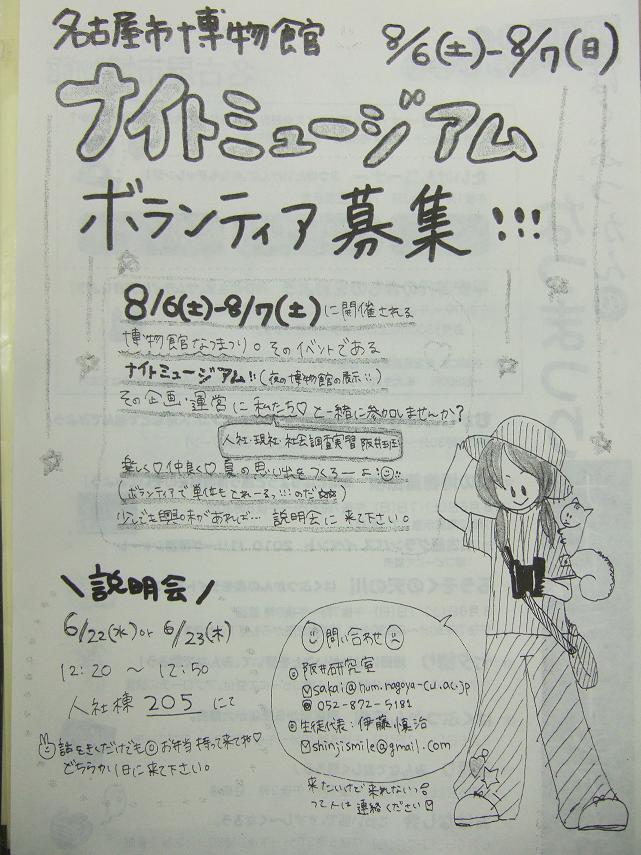 名古屋市博物館 8/6(土)-8/7(日)
ナイトミュージアム
ボランティア募集!!!
8/6(土)-8/7(土)に開催される
博物館なつまつり。そのイベントである
ナイトミュージアム!!(夜の博物館の展示::)
その企画・運営に私たち♡と一緒に参加しませんか?
人社・現社 社会調査実習 阪井班
楽しく♡仲良く♡夏の思い出をつくろーよ:
(ボランティアで単位もとれーるっ…!のだ☆☆)
少しでも興味があれば… 説明会に来て下さい。
\説明会/
6/22(水) or 6/23(木)
12:20 〜 12:50
人社棟 205 にて
話をきくだけでも◎お弁当持って来てね♡
どちらか1日に来て下さい。
問い合わせ
阪井研究室
sakai@hum.nagoya-cu.ac.jp
☎052-872-5181
生徒代表:伊藤慎治
shinjismile@gmail.com
来たいけど来れないっ!
って人は連絡ください